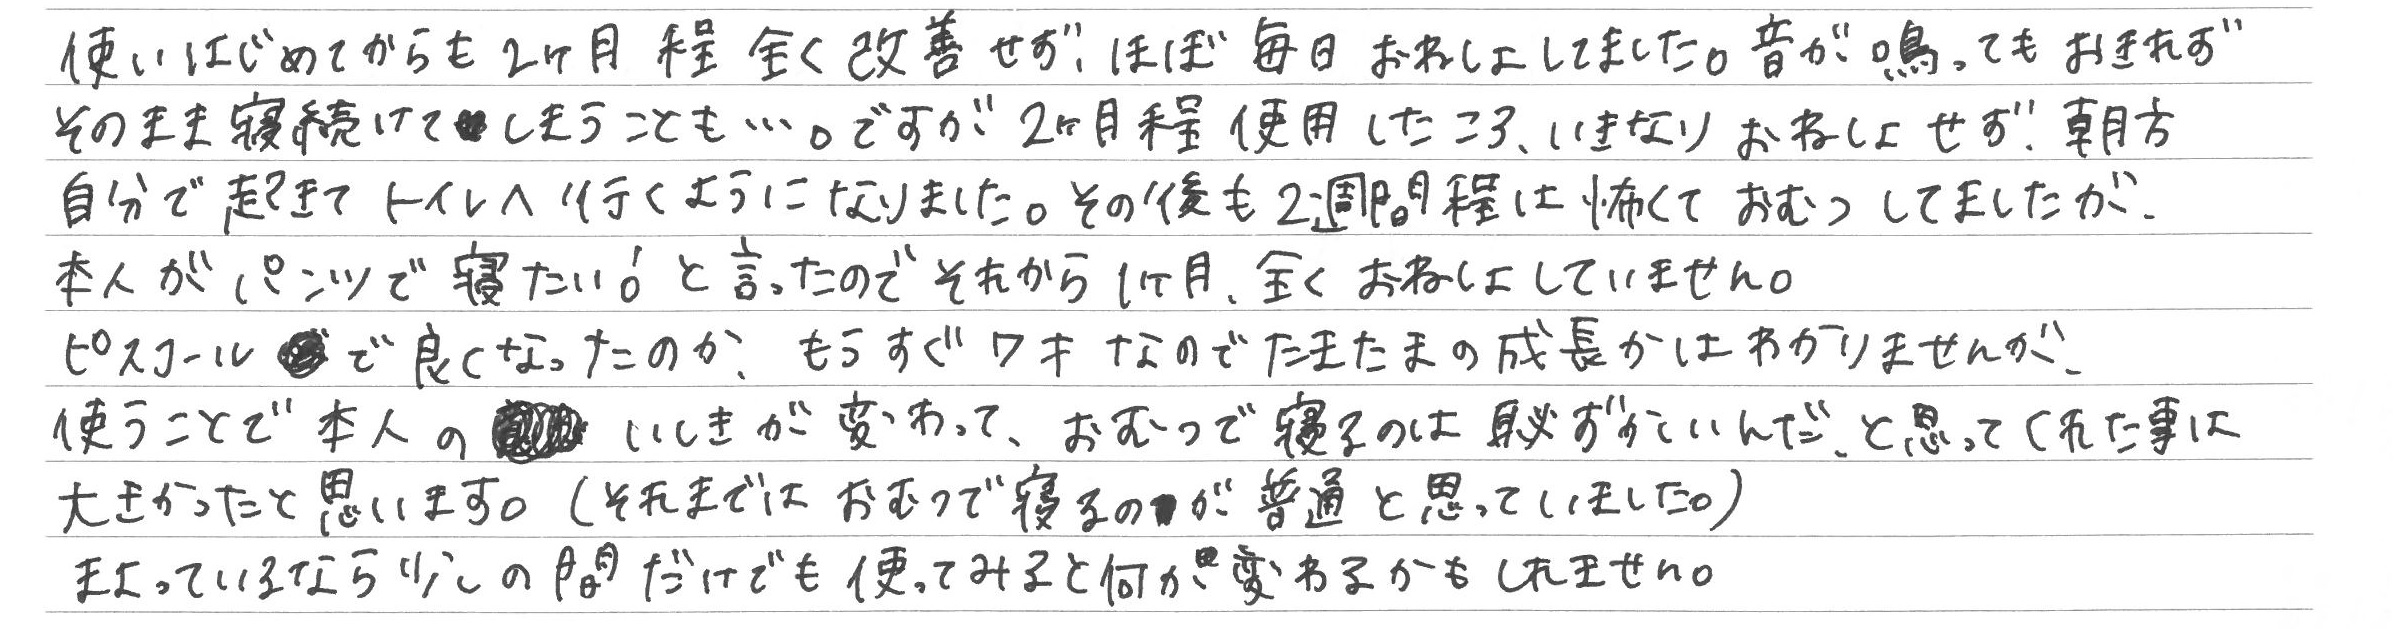 使いはじめてからも2ヶ月程全く改善せず、ほぼ毎日おねしょしてました。音が鳴ってもおきれず
そのまま寝続けてしまうことも…。ですが2ヶ月程使用したころ、いきなりおねしょせず、朝方
自分で起きてトイレへ行くようになりました。その後も2週間程は怖くておむつしてましたが、
本人がパンツで寝たい!と言ったのでそれから1ヶ月、全くおねしょしていません。
ピスコールで良くなったのか、もうすぐワオなのでたまたまの成長かはわかりませんが、
使うことで本人のいしきが変わって、おむつで寝るのは恥ずかしいんだ、と思ってくれた事は
大きかったと思います。(それまではおむつで寝るのが普通と思っていました。)
まよっているなら少しの間だけでも使ってみると何か変わるかもしれません。